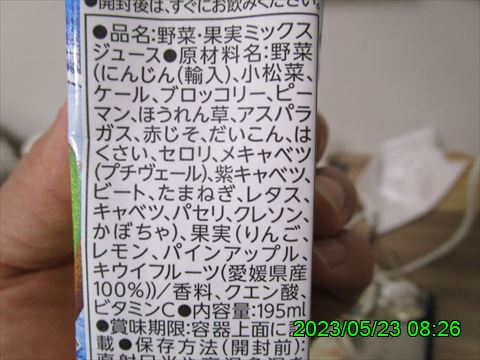 ●開封後は、すぐにお飲みください。
●品名:野菜・果実ミックス
ジュース●原材料名:野菜
(にんじん(輸入)、小松菜、
ケール、ブロッコリー、ピー
マン、ほうれん草、アスパラ
ガス、赤じそ、だいこん、は
くさい、セロリ、メキャベツ
(プチヴェール)、紫キャベツ、
ビート、たまねぎ、レタス、
キャベツ、パセリ、クレソン、
かぼちゃ)、果実(りんご、
レモン、パインアップル、
キウイフルーツ(愛媛県産
100%))/香料、クエン酸、
ビタミンC●内容量:195ml
●賞味期限:容器上面に記
載●保存方法(開封前):
2023/05/23 08:26